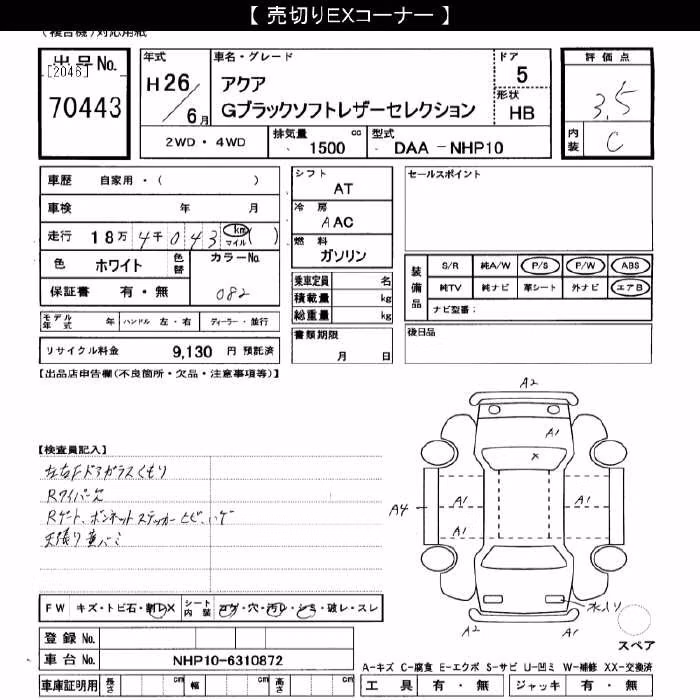 【 売切りEXコーナー 】
(複合機)対応用紙
出品No.
[2046]
70443
年式
H26/6月
車名・グレード
アクア
Gブラックソフトレザーセレクション
ドア
5
形状
HB
評価点
3.5
内装
C
2WD・4WD
排気量 cc
1500
型式
DAA-NHP10
車歴 自家用・( )
車検 年 月
走行 18万4千043 km マイル ( )
色 ホワイト 色替
カラーNo.
082
保証書 有・無
シフト
AT
冷房
AAC
燃料
ガソリン
乗車定員 名
積載量 kg
総重量 kg
セールスポイント
装備品
S/R 純A/W P/S P/W ABS
純TV 純ナビ 革シート 外ナビ エアB
ナビ型番:
モデル年式 年 ハンドル 左・右 ディーラー・並行
リサイクル料金 9,130 円 預託済
書類期限
月 日
後日品
【出品店申告欄(不良箇所・欠品・注意事項等)】
【検査員記入】
左右Fドアガラスくもり
Rワイパー欠
Rゲート、ボンネットステッカーヒビ、ハゲ
天張り黄バミ
A2
A1
X
A1 A1
A4 A1 A1
A1
A2 A2
水入り
スペア
FW キズ・トビ石・割レX シート内装 コゲ・穴・汚レ・シミ・破レ・スレ
登録No.
車台No. NHP10-6310872
車庫証明用 長さ cm 幅 cm 高さ cm
A-キズ C-腐食 E-エクボ S-サビ U-凹ミ W-補修 XX-交換済
工具 有・無 ジャッキ 有・無